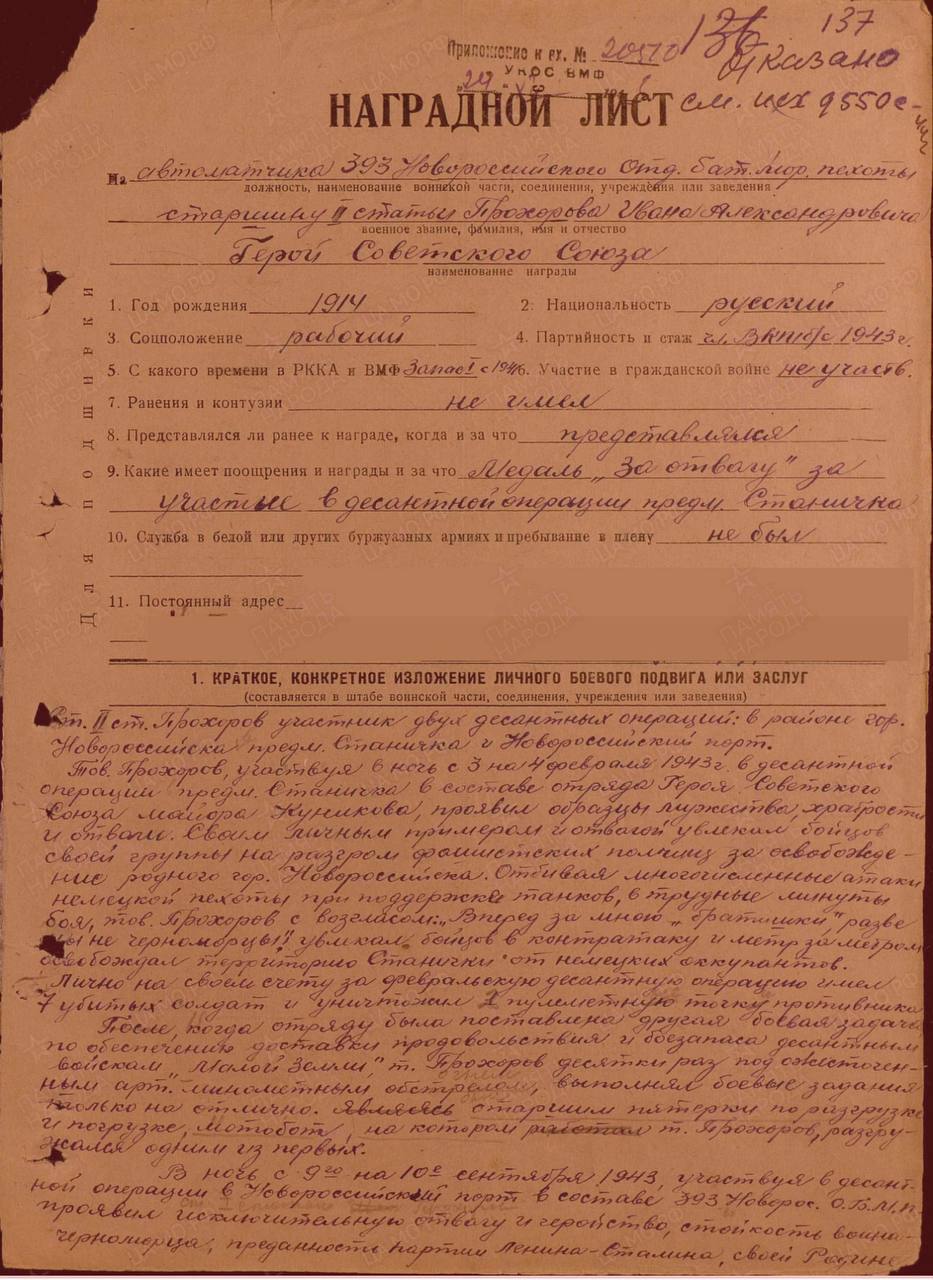 137
136
Приложение к вх. № 20570
Отказано
УКОС ВМФ
НАГРАДНОЙ ЛИСТ
см. исх 9550с
На автоматчика 393 Новороссийского Отд. бат. мор. пехоты
должность, наименование воинской части, соединения, учреждения или заведения
старшину II статьи Прохорова Ивана Александровича
военное звание, фамилия, имя и отчество
Герой Советского Союза
наименование награды
Для подшивки
1. Год рождения 1914 2. Национальность русский
3. Соцположение рабочий 4. Партийность и стаж чл. ВКП/б/с 1943 г.
5. С какого времени в РККА и ВМФ Запас I с 1941 6. Участие в гражданской войне не участв.
7. Ранения и контузии не имел
8. Представлялся ли ранее к награде, когда и за что представлялся
9. Какие имеет поощрения и награды и за что Медаль „За отвагу" за
участие в десантной операции предм. Станичка
10. Служба в белой или других буржуазных армиях и пребывание в плену не был
11. Постоянный адрес
1. КРАТКОЕ, КОНКРЕТНОЕ ИЗЛОЖЕНИЕ ЛИЧНОГО БОЕВОГО ПОДВИГА ИЛИ ЗАСЛУГ
(составляется в штабе воинской части, соединения, учреждения или заведения)
Ст. II ст. Прохоров участник двух десантных операций: в районе гор.
Новороссийска предм. Станичка и Новороссийский порт.
Тов. Прохоров, участвуя в ночь с 3 на 4 февраля 1943 г. в десантной
операции предм. Станичка в составе отряда Героя Советского
Союза майора Куникова, проявил образцы мужества, храбрости
и отваги. Своим личным примером и отвагой увлекал бойцов
своей группы на разгром фашистских полчищ за освобожде-
ние родного гор. Новороссийска. Отбивая многочисленные атаки
немецкой пехоты при поддержке танков, в трудные минуты
боя, тов. Прохоров с возгласом: „Вперед за мною „братишки", разве
мы не черноморцы", увлекал бойцов в контратаку и метр за метром
освобождал территорию Станички от немецких оккупантов.
Лично на своем счету за февральскую десантную операцию имел
7 убитых солдат и уничтожил 1 пулеметную точку противника
После, когда отряду была поставлена другая боевая задача
по обеспечению доставки продовольствия и боезапаса десантным
войскам „Малой Земли", т. Прохоров десятки раз под ожесточен-
ным арт. минометным обстрелом, выполнял боевые задания
только на отлично. Являясь старшим пятерки по разгрузке
и погрузке, мотобот, на котором работал т. Прохоров, разгру-
жался одним из первых.
В ночь с 9го на 10е сентября 1943, участвуя в десант-
ной операции в Новороссийский порт в составе 393 Новорос. О.Б.М.П.
проявил исключительную отвагу и геройство, стойкость воина-
черноморца, преданность партии Ленина-Сталина, своей Родине